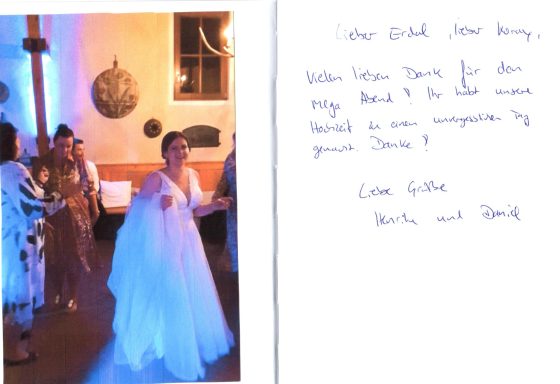 Lieber Erdal, lieber Konny,
Vielen lieben Dank für den
mega Abend! Ihr habt unsere
Hochzeit zu einem unvergesslichen Tag
gemacht. Danke!
Liebe Grüße
Henrike und Daniel